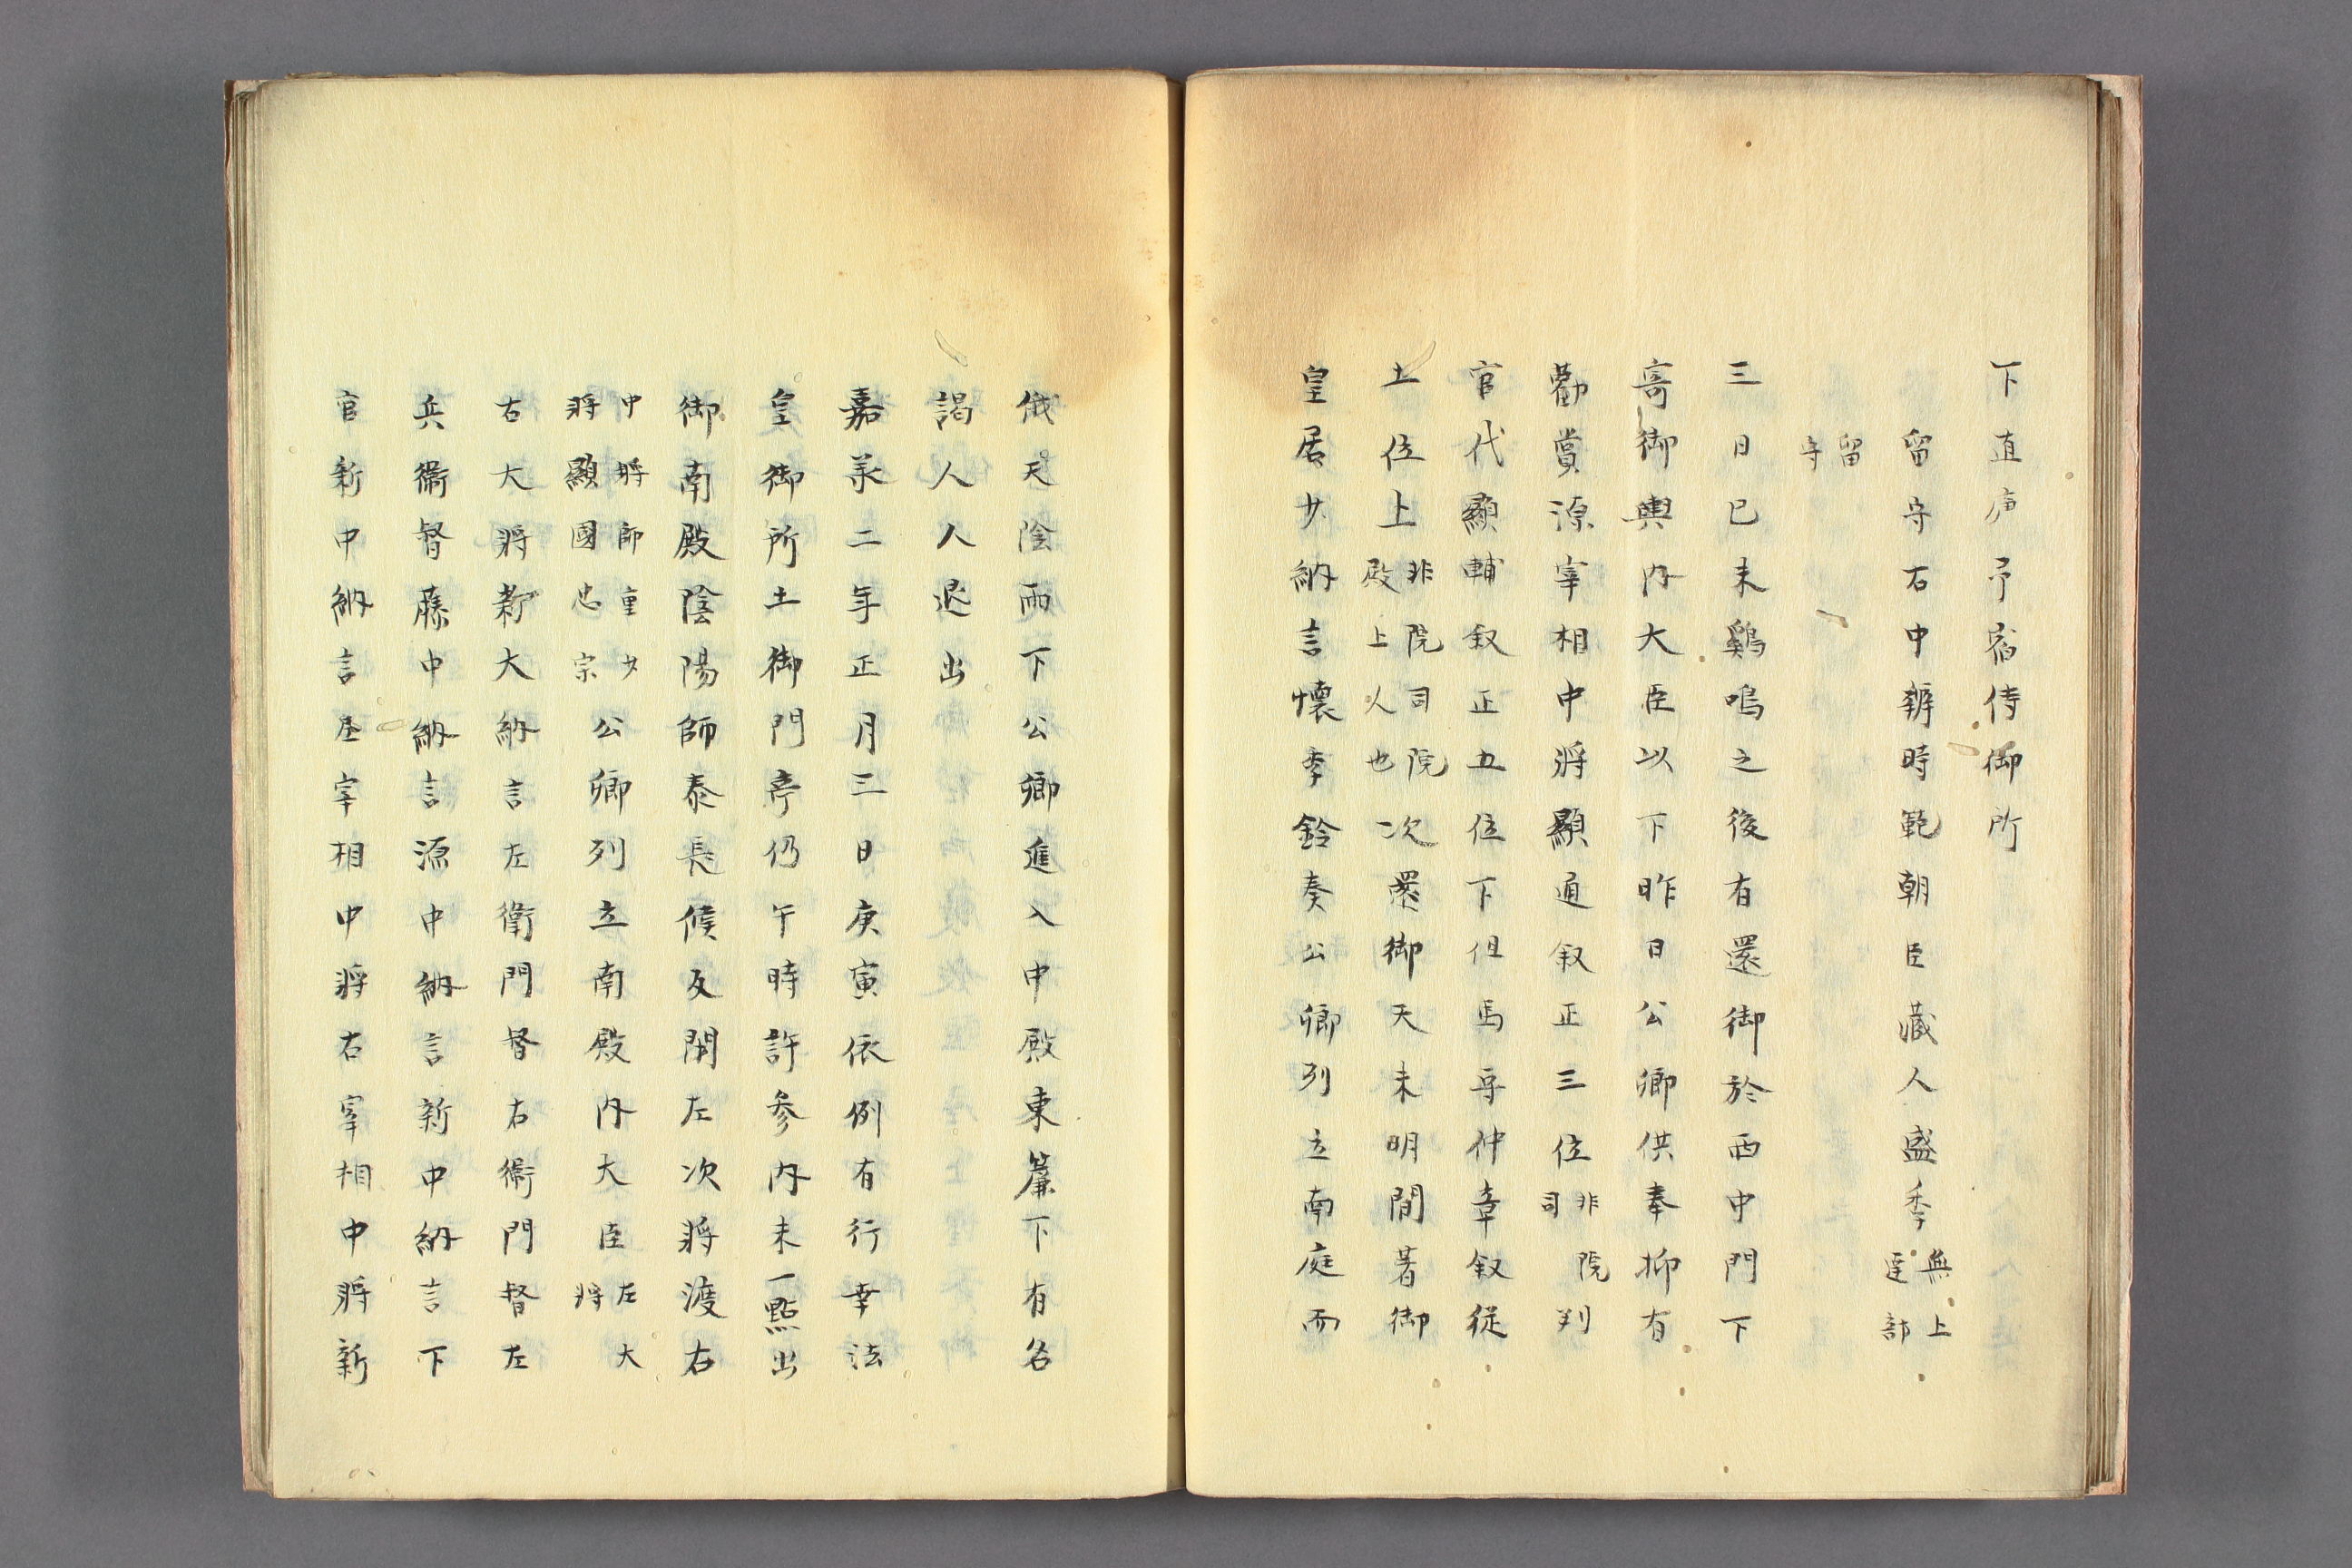 下直庐予宿侍御所
留守右中辨時範朝臣藏人盛季無上達部
留守
三日己未鷄鳴之後有還御於西中門下
寄御輿内大臣以下昨日公卿供奉抑有
勸賞源宰相中將顯通叙正三位非院司判
官代顯輔叙正五位下但馬守仲章叙從
上位上非院司院殿上人也次還御天未明間著御
皇居少納言懷季鈴奏公卿列立南庭而
俄天陰雨下公卿進入中殿東簾下有名
謁人人退出
嘉承二年正月三日庚寅依例有行幸法
皇御所土御門亭仍午時許参内未一點出
御南殿陰陽師泰長候反閇左次將渡右
中將師重少將顯國忠宗公卿列立南殿内大臣左大將
右大將新大納言左衛門督右衞門督左
兵衞督藤中納言源中納言新中納言下
官新中納言左宰相中將右宰相中將新